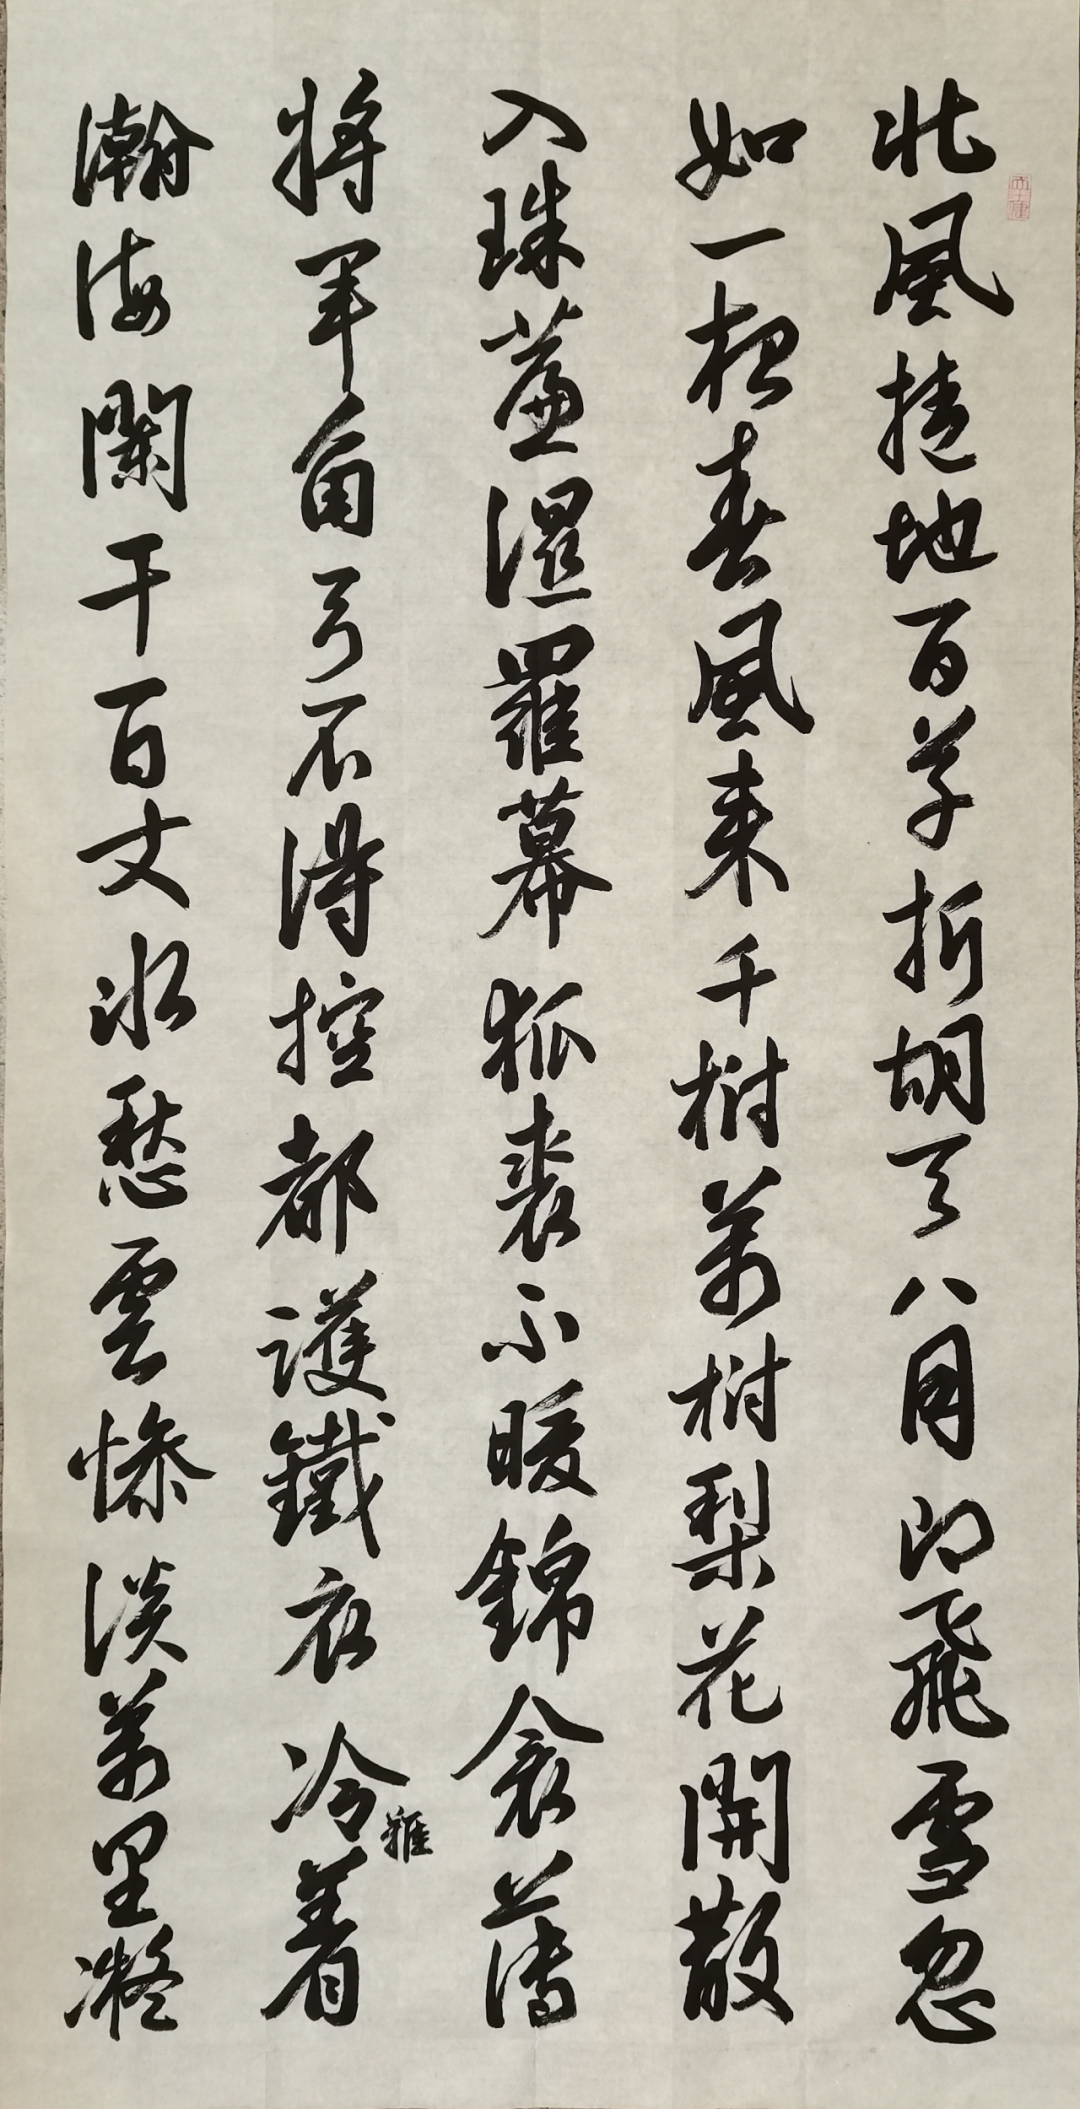 北風捲地百草折胡天八月即飛雪忽
如一夜春風来千樹萬樹梨花開散
入珠簾濕羅幕狐裘不暖錦衾薄
將軍角弓不得控都護鐵衣冷難着
瀚海闌干百丈冰愁雲惨淡萬里凝